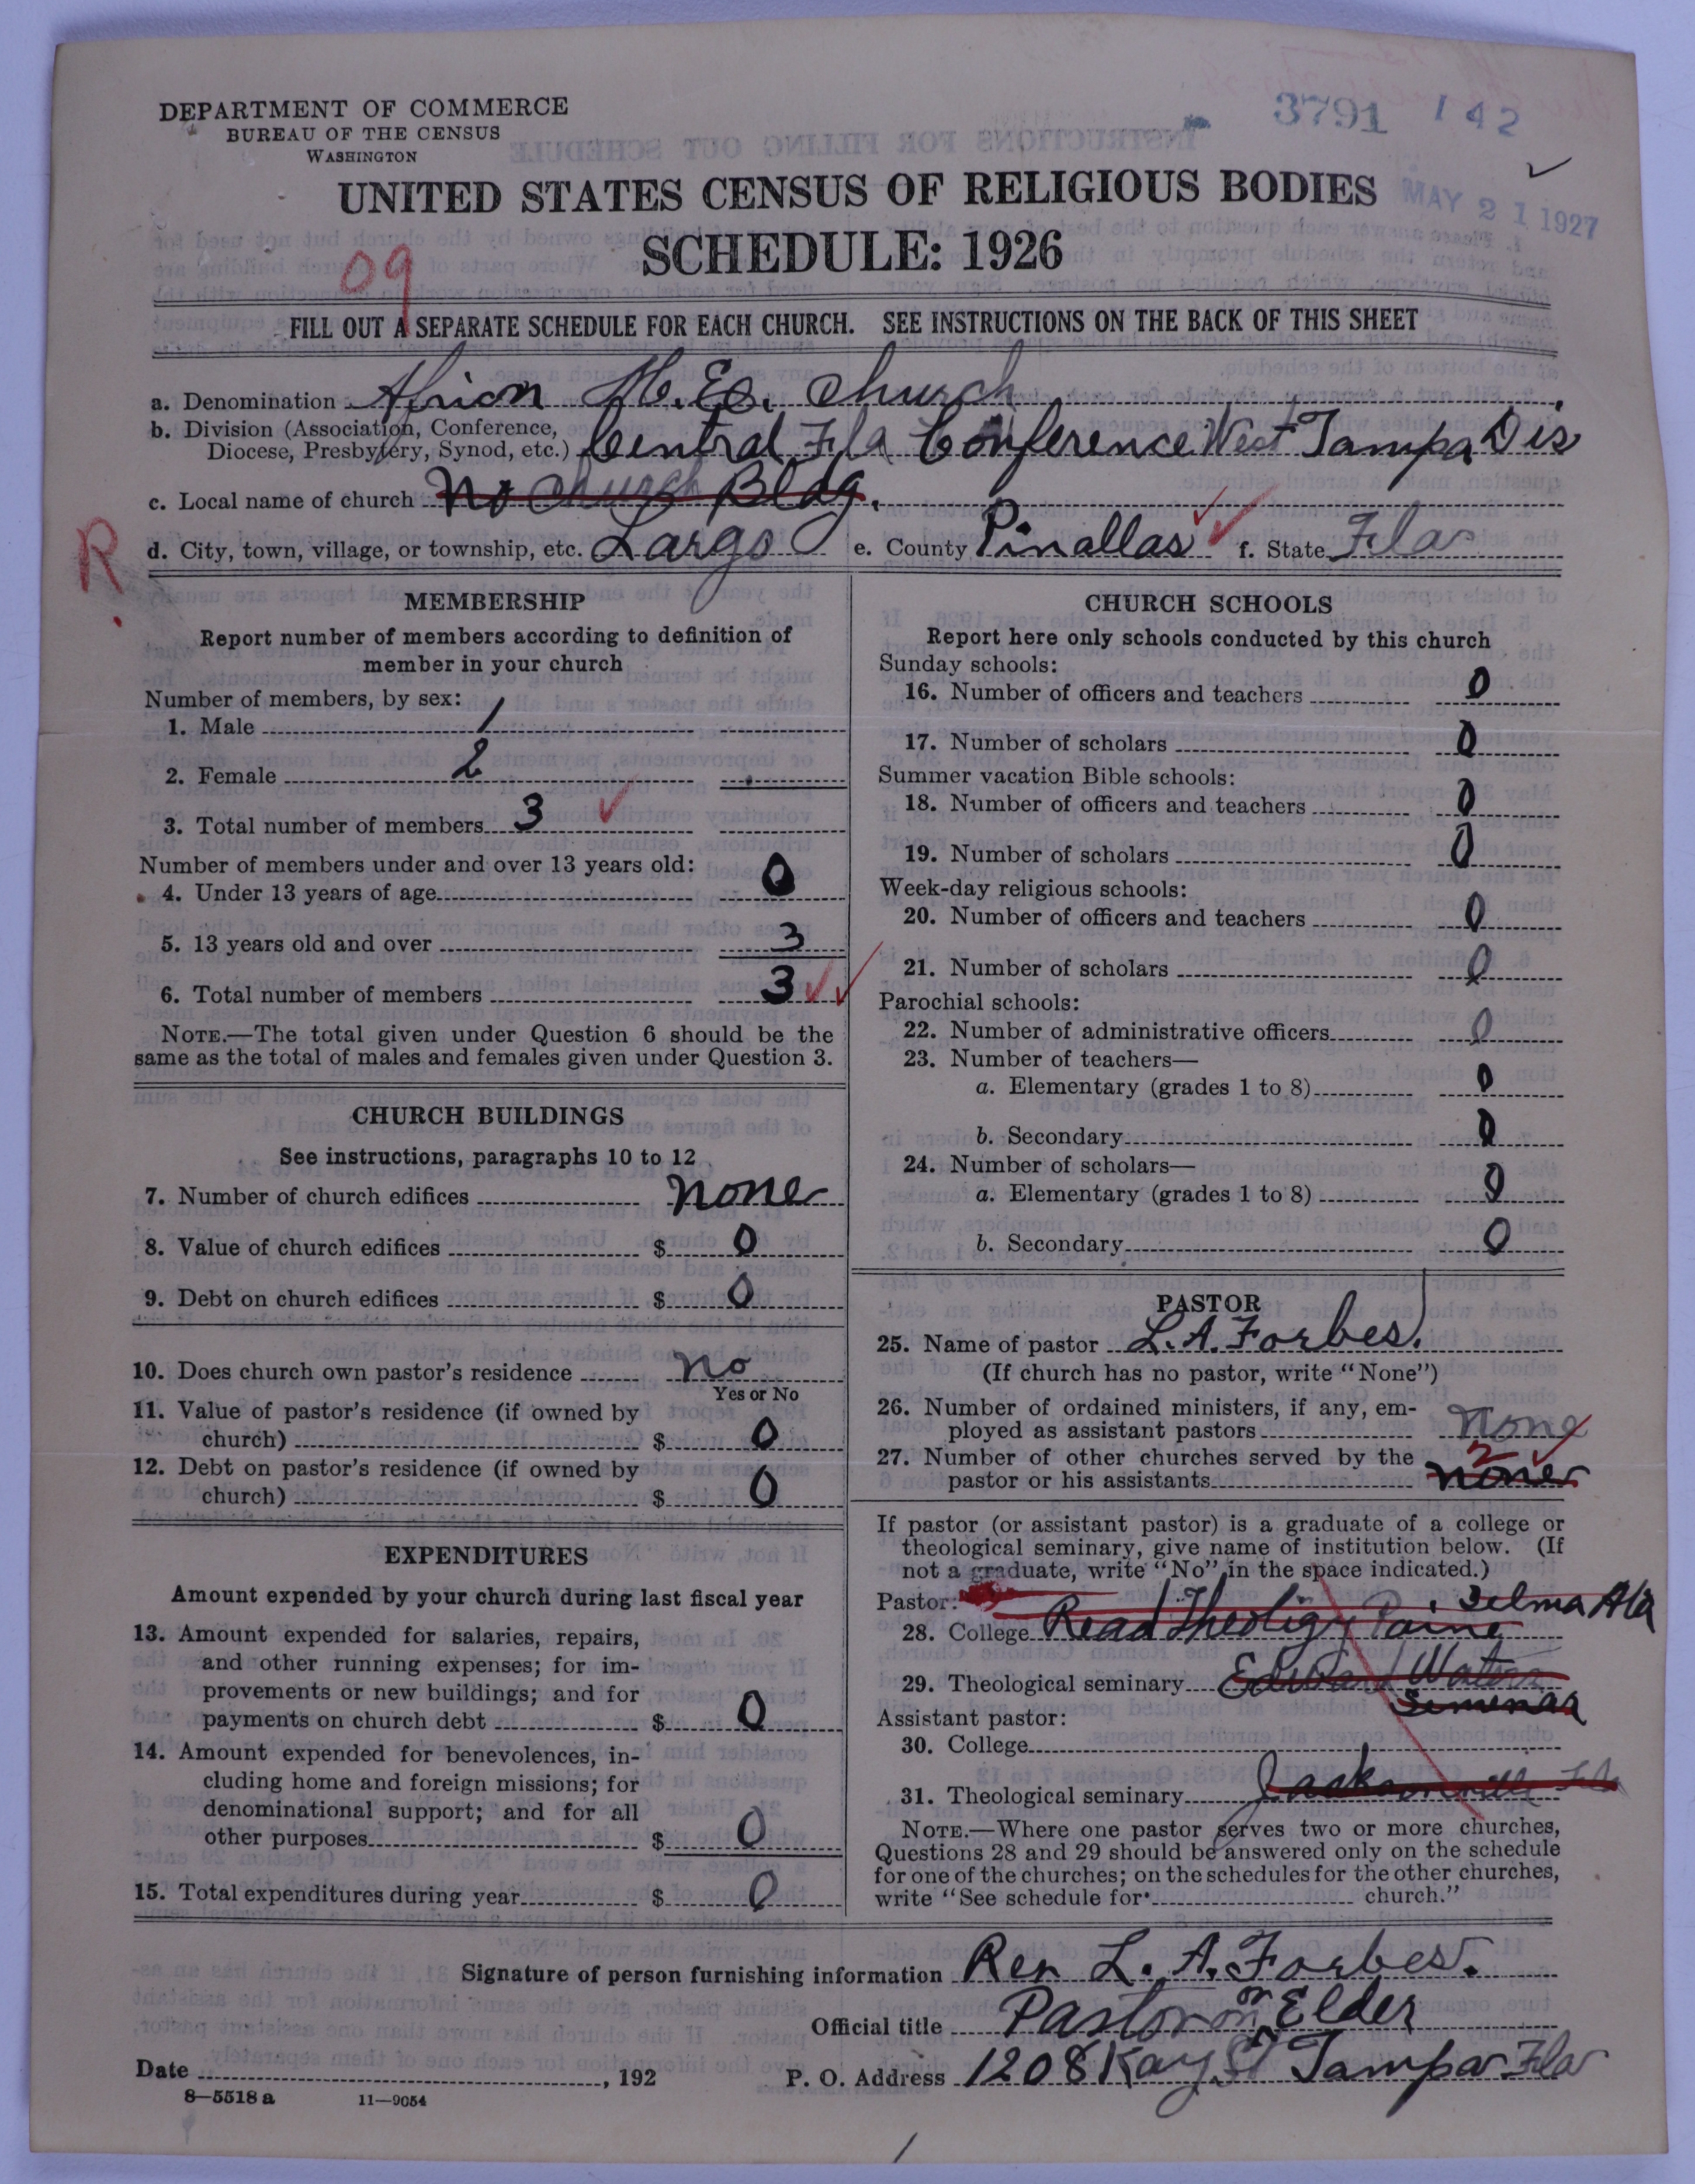 DEPARTMENT OF COMMERCE
BUREAU OF THE CENSUS
WASHINGTON
3791 142
UNITED STATES CENSUS OF RELIGIOUS BODIES
MAY 21 1927
SCHEDULE: 1926
09
FILL OUT A SEPARATE SCHEDULE FOR EACH CHURCH. SEE INSTRUCTIONS ON THE BACK OF THIS SHEET
a. Denomination M. E. Church
b. Division (Association, Conference,
Diocese, Presbytery, Synod, etc.) Central Fla Conference West Tampa Dis
c. Local name of church No Church Bldg.
R
d. City, town, village, or township, etc. Largo e. County Pinallas f. State Fla
MEMBERSHIP
Report number of members according to definition of
member in your church
Number of members, by sex:
1. Male 1
2. Female 2
3. Total number of members 3
Number of members under and over 13 years old:
4. Under 13 years of age 0
5. 13 years old and over 3
6. Total number of members 3
NOTE.—The total given under Question 6 should be the
same as the total of males and females given under Question 3.
CHURCH BUILDINGS
See instructions, paragraphs 10 to 12
7. Number of church edifices none
8. Value of church edifices $ 0
9. Debt on church edifices $ 0
10. Does church own pastor's residence no
Yes or No
11. Value of pastor's residence (if owned by
church) $ 0
12. Debt on pastor's residence (if owned by
church) $ 0
EXPENDITURES
Amount expended by your church during last fiscal year
13. Amount expended for salaries, repairs,
and other running expenses; for im-
provements or new buildings; and for
payments on church debt $ 0
14. Amount expended for benevolences, in-
cluding home and foreign missions; for
denominational support; and for all
other purposes $ 0
15. Total expenditures during year $ 0
CHURCH SCHOOLS
Report here only schools conducted by this church
Sunday schools:
16. Number of officers and teachers 0
17. Number of scholars 0
Summer vacation Bible schools:
18. Number of officers and teachers 0
19. Number of scholars 0
Week-day religious schools:
20. Number of officers and teachers 0
21. Number of scholars 0
Parochial schools:
22. Number of administrative officers 0
23. Number of teachers—
a. Elementary (grades 1 to 8) 0
b. Secondary 0
24. Number of scholars—
a. Elementary (grades 1 to 8) 0
b. Secondary 0
PASTOR
25. Name of pastor L. A. Forbes
(If church has no pastor, write "None")
26. Number of ordained ministers, if any, em-
ployed as assistant pastors None
27. Number of other churches served by the 2
pastor or his assistants none
If pastor (or assistant pastor) is a graduate of a college or
theological seminary, give name of institution below. (If
not a graduate, write "No" in the space indicated.)
Pastor: Selma Ala
28. College Read Theoligy Paine
29. Theological seminary Edward Waters
Assistant pastor:
30. College
31. Theological seminary Jacksonville Fla
NOTE.—Where one pastor serves two or more churches,
Questions 28 and 29 should be answered only on the schedule
for one of the churches; on the schedules for the other churches,
write "See schedule for church."
Signature of person furnishing information Rev L. A. Forbes.
Official title Pastor or Elder
Date , 192 P. O. Address 1208 Kay St Tampa Fla
8—5518 a 11—9054